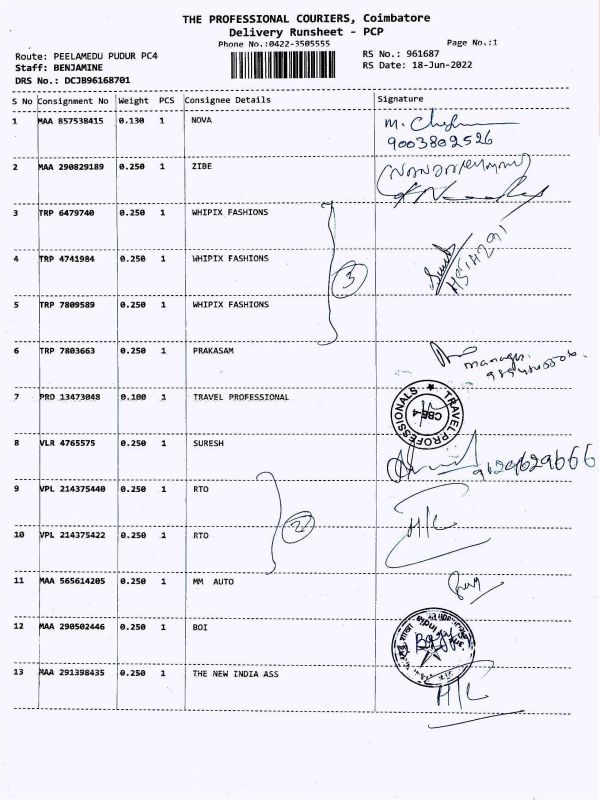 THE PROFESSIONAL COURIERS, Coimbatore
Delivery Runsheet - PCP
Phone No.:0422-3505555 Page No.:1
Route: PEELAMEDU PUDUR PC4 RS No.: 961687
Staff: BENJAMINE RS Date: 18-Jun-2022
DRS No.: DCJB96168701
S No Consignment No Weight PCS Consignee Details Signature
1 MAA 857538415 0.130 1 NOVA M.
9003802526
2 MAA 290829189 0.250 1 ZIBE
3 TRP 6479740 0.250 1 WHIPIX FASHIONS
4 TRP 4741984 0.250 1 WHIPIX FASHIONS 3
5 TRP 7809589 0.250 1 WHIPIX FASHIONS
6 TRP 7803663 0.250 1 PRAKASAM manager.
7 PRO 13473048 0.100 1 TRAVEL PROFESSIONAL TRAVEL PROFESSIONALS CBE-4
8 VLR 4765575 0.250 1 SURESH 9629629666
9 VPL 214375440 0.250 1 RTO
10 VPL 214375422 0.250 1 RTO 2 H/C
11 MAA 565614205 0.250 1 MM AUTO
12 MAA 290502446 0.250 1 BOI
13 MAA 291398435 0.250 1 THE NEW INDIA ASS H/C